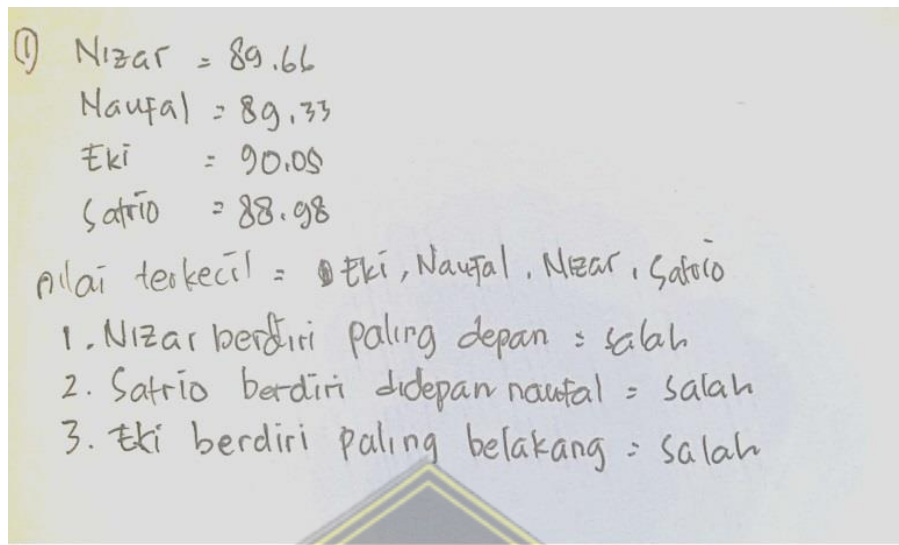 ① Nizar = 89.66
Naufal = 89.33
Eki = 90.05
Satrio = 88.98
Nilai terkecil = Eki, Naufal, Nizar, Satrio
1. Nizar berdiri paling depan = salah
2. Satrio berdiri didepan naufal = salah
3. Eki berdiri paling belakang = salah